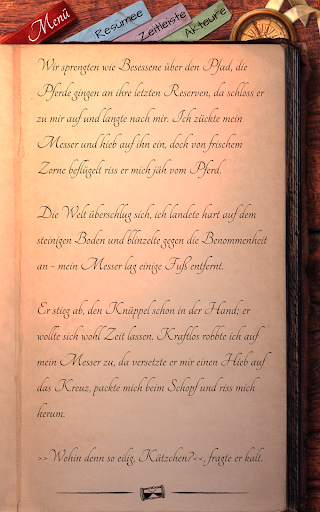 Menü
Resumee
Zeitleiste
Akteure
Wir sprengten wie Besessene über den Pfad, die
Pferde gingen an ihre letzten Reserven, da schloss er
zu mir auf und langte nach mir. Ich zückte mein
Messer und hieb auf ihn ein, doch von frischem
Zorne beflügelt riss er mich jäh vom Pferd.
Die Welt überschlug sich, ich landete hart auf dem
steinigen Boden und blinzelte gegen die Benommenheit
an - mein Messer lag einige Fuß entfernt.
Er stieg ab, den Knüppel schon in der Hand; er
wollte sich wohl Zeit lassen. Kraftlos robbte ich auf
mein Messer zu, da versetzte er mir einen Hieb auf
das Kreuz, packte mich beim Schopf und riss mich
herum.
>>Wohin denn so eilig, Kätzchen?<<, fragte er kalt.